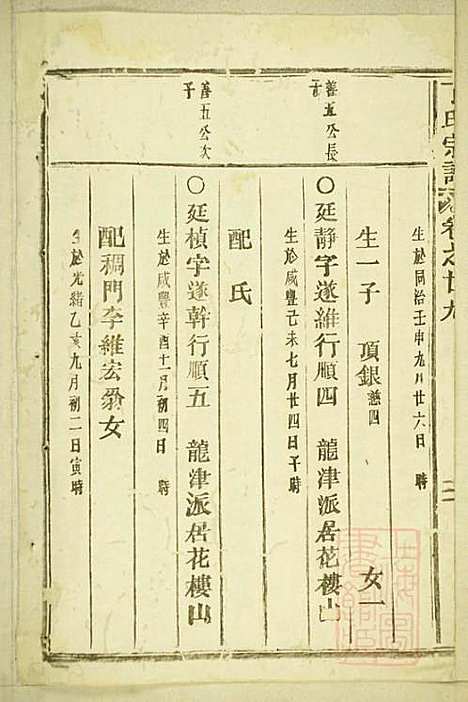 丁氏宗譜 卷之廿九
生於同治壬申九月廿六日 時
生一子 項銀慈四 女一
善五公長子
○廷靜字遂維行順四 龍津派居花樓山
生於咸豐己未七月廿四日午時
配氏
善五公次子
○廷楨字遂幹行順五 龍津派居花樓山
生於咸豐辛酉十一月初四日 時
配稠門李維宏翁女
生於光緒乙亥九月初二日寅時